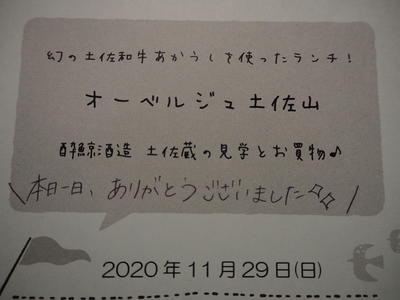 幻の土佐和牛あかうしを使ったランチ!
オーベルジュ土佐山
酔鯨酒造 土佐蔵の見学とお買物♪
\本日一日、ありがとうございました☆☆/
2020年11月29日(日)